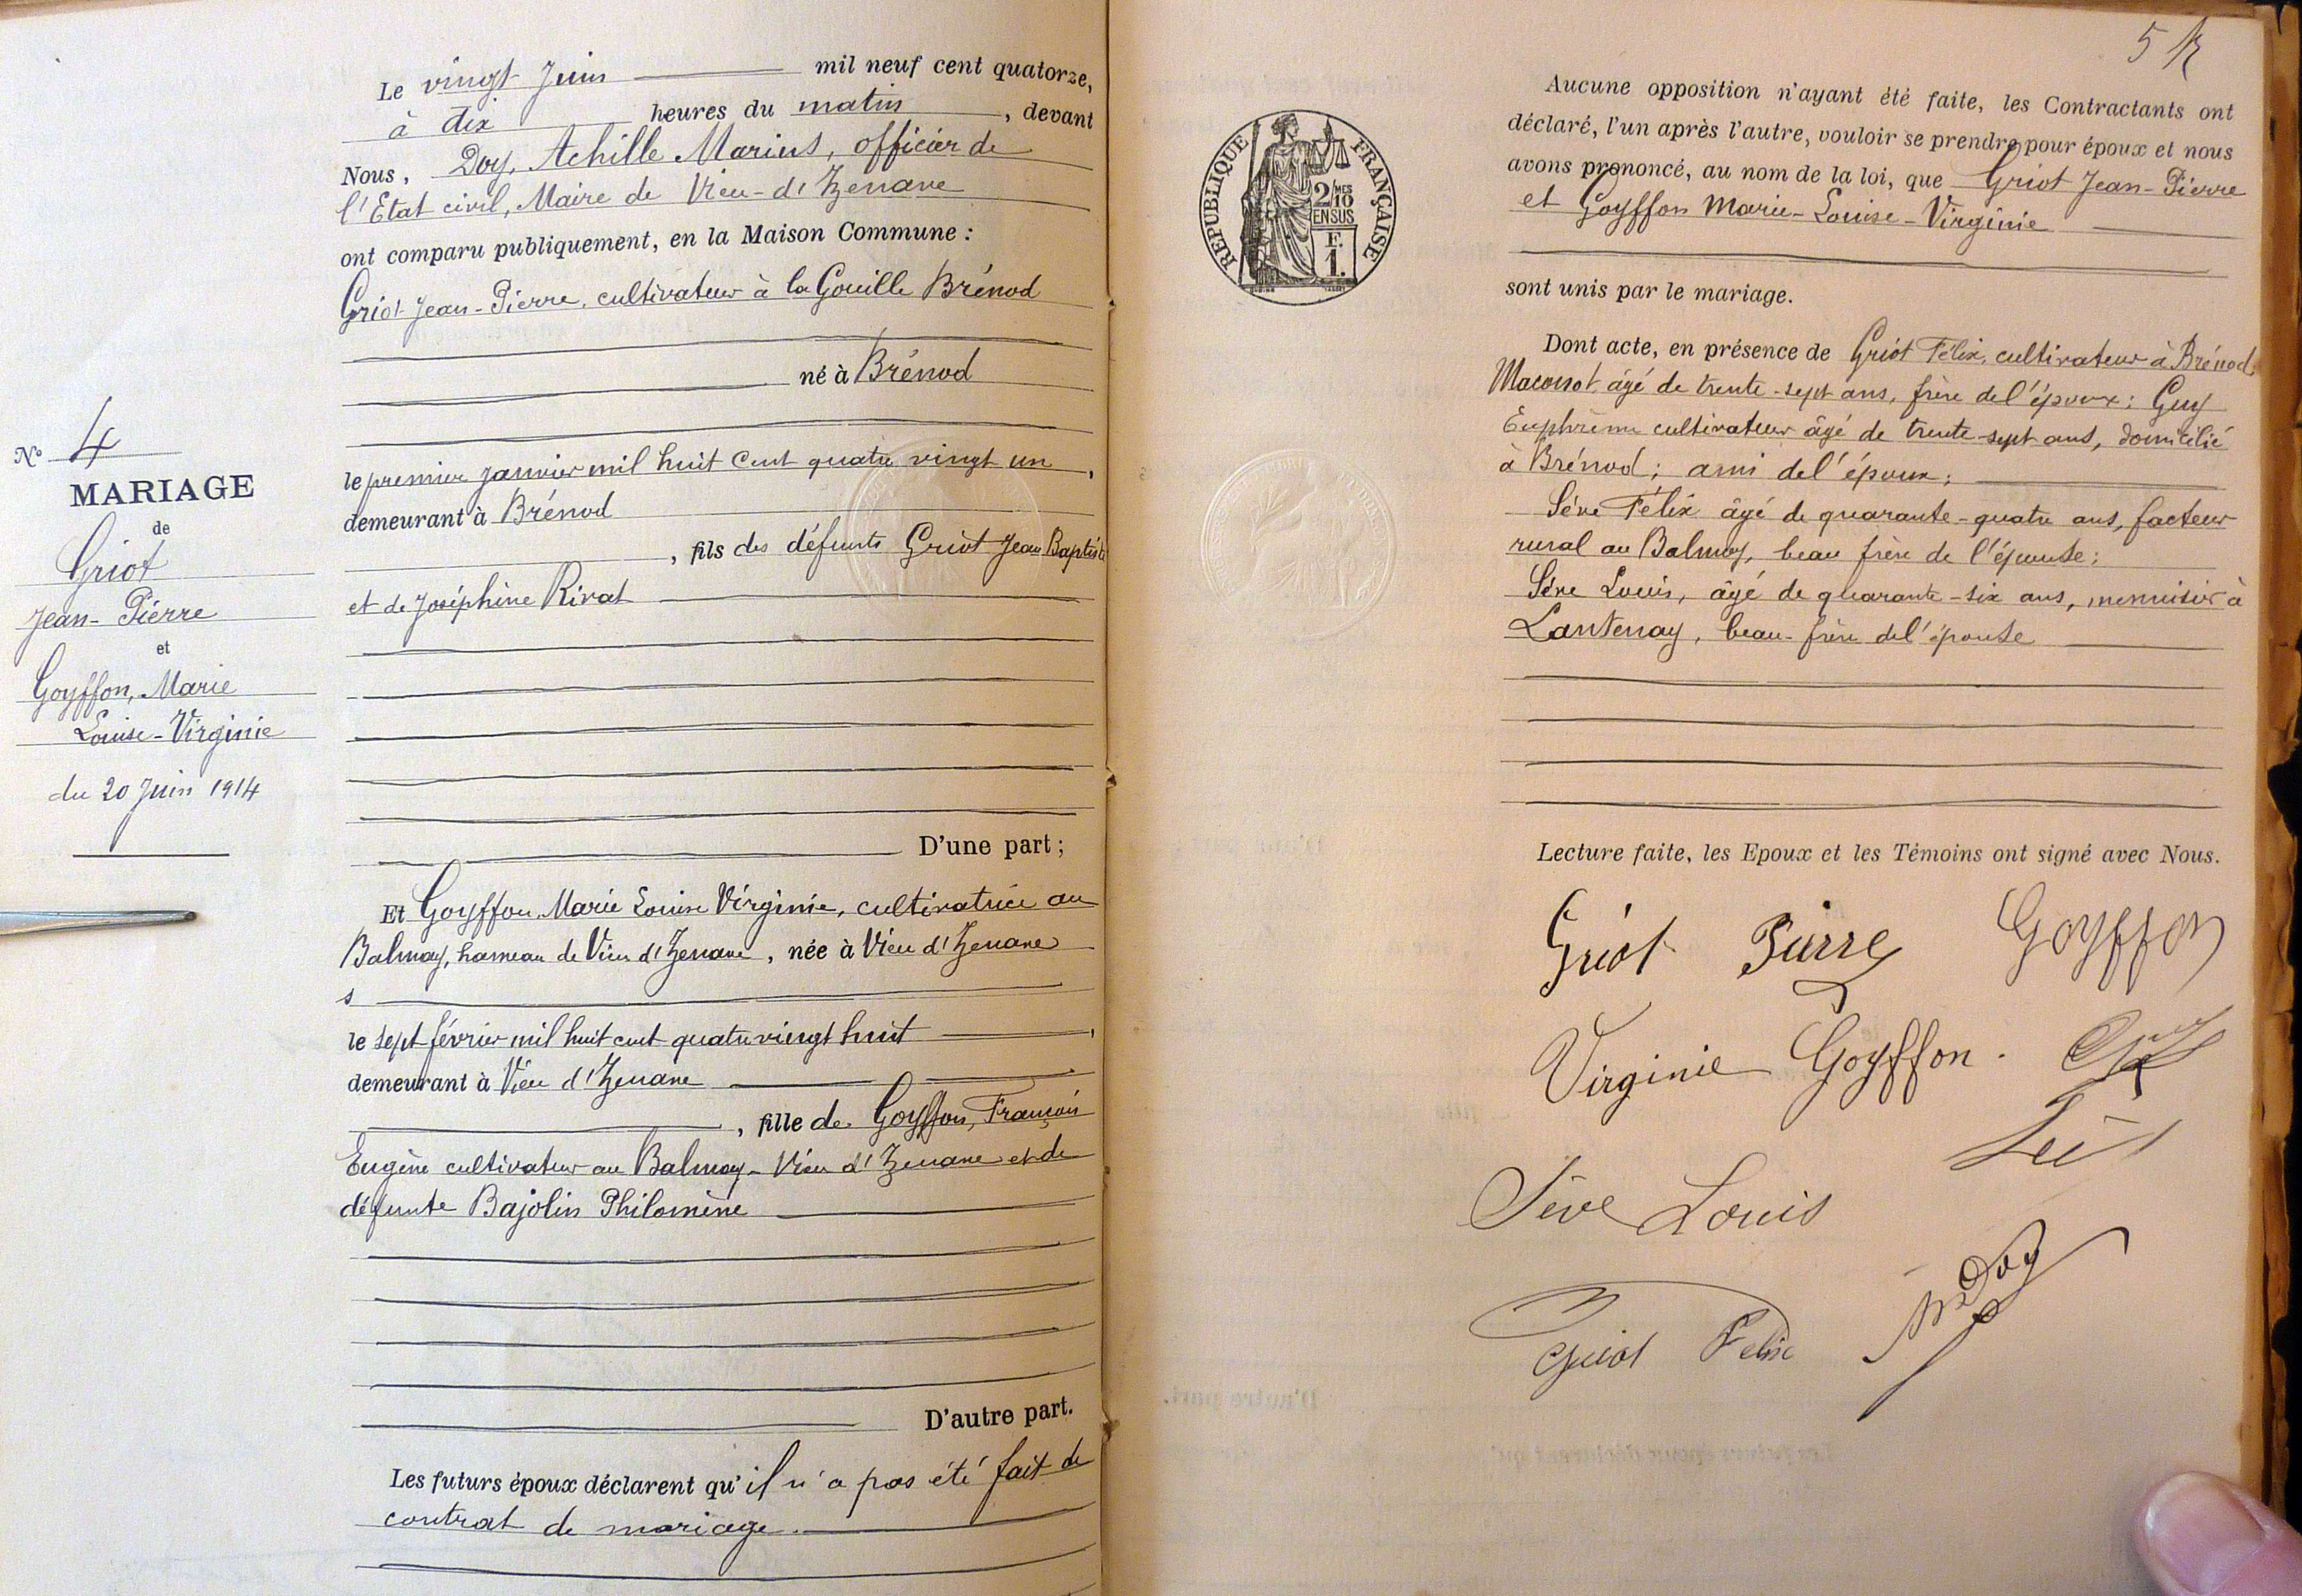 Le vingt Juin mil neuf cent quatorze,
à dix heures du matin, devant
Nous, Doy, Achille Marius, officier de
l'Etat civil, Maire de Vieu-d'Izenave
ont comparu publiquement, en la Maison Commune :
Griot Jean-Pierre, cultivateur à la Gouille Brénod
né à Brénod
le premier janvier mil huit cent quatre vingt un,
demeurant à Brénod
, fils des défunts Griot Jean Baptiste
et de Joséphine Rivat
D'une part ;
Et Goyffon, Marie Louise Virginie, cultivatrice au
Balmay, hameau de Vieu d'Izenave, née à Vieu d'Izenave
s
le sept février mil huit cent quatre vingt huit,
demeurant à Vieu d'Izenave
, fille de Goyffon, François
Eugène cultivateur au Balmay-Vieu d'Izenave et de
défunte Bajolin Philomène
D'autre part.
Les futurs époux déclarent qu'il n'a pas été fait de
contrat de mariage.
N° 4
MARIAGE
de
Griot
Jean-Pierre
et
Goyffon, Marie
Louise-Virginie
du 20 Juin 1914
5
Aucune opposition n'ayant été faite, les Contractants ont
déclaré, l'un après l'autre, vouloir se prendre pour époux et nous
avons prononcé, au nom de la loi, que Griot Jean-Pierre
et Goyffon Marie-Louise-Virginie
sont unis par le mariage.
Dont acte, en présence de Griot Félix, cultivateur à Brénod,
Maconot, âgé de trente-sept ans, frère de l'époux ; Guy
Euphrème cultivateur âgé de trente-sept ans, domicilié
à Brénod ; ami de l'époux ;
Sève Félix âgé de quarante-quatre ans, facteur
rural au Balmay, beau frère de l'épouse ;
Sève Louis, âgé de quarante-six ans, menuisier à
Lantenay, beau-frère de l'épouse
Lecture faite, les Epoux et les Témoins ont signé avec Nous.
Griot Pierre Goyffon
Virginie Goyffon.
Sève Louis
Griot Felix Doy
REPUBLIQUE FRANÇAISE
2/10 MES
EN SUS
F.
1.